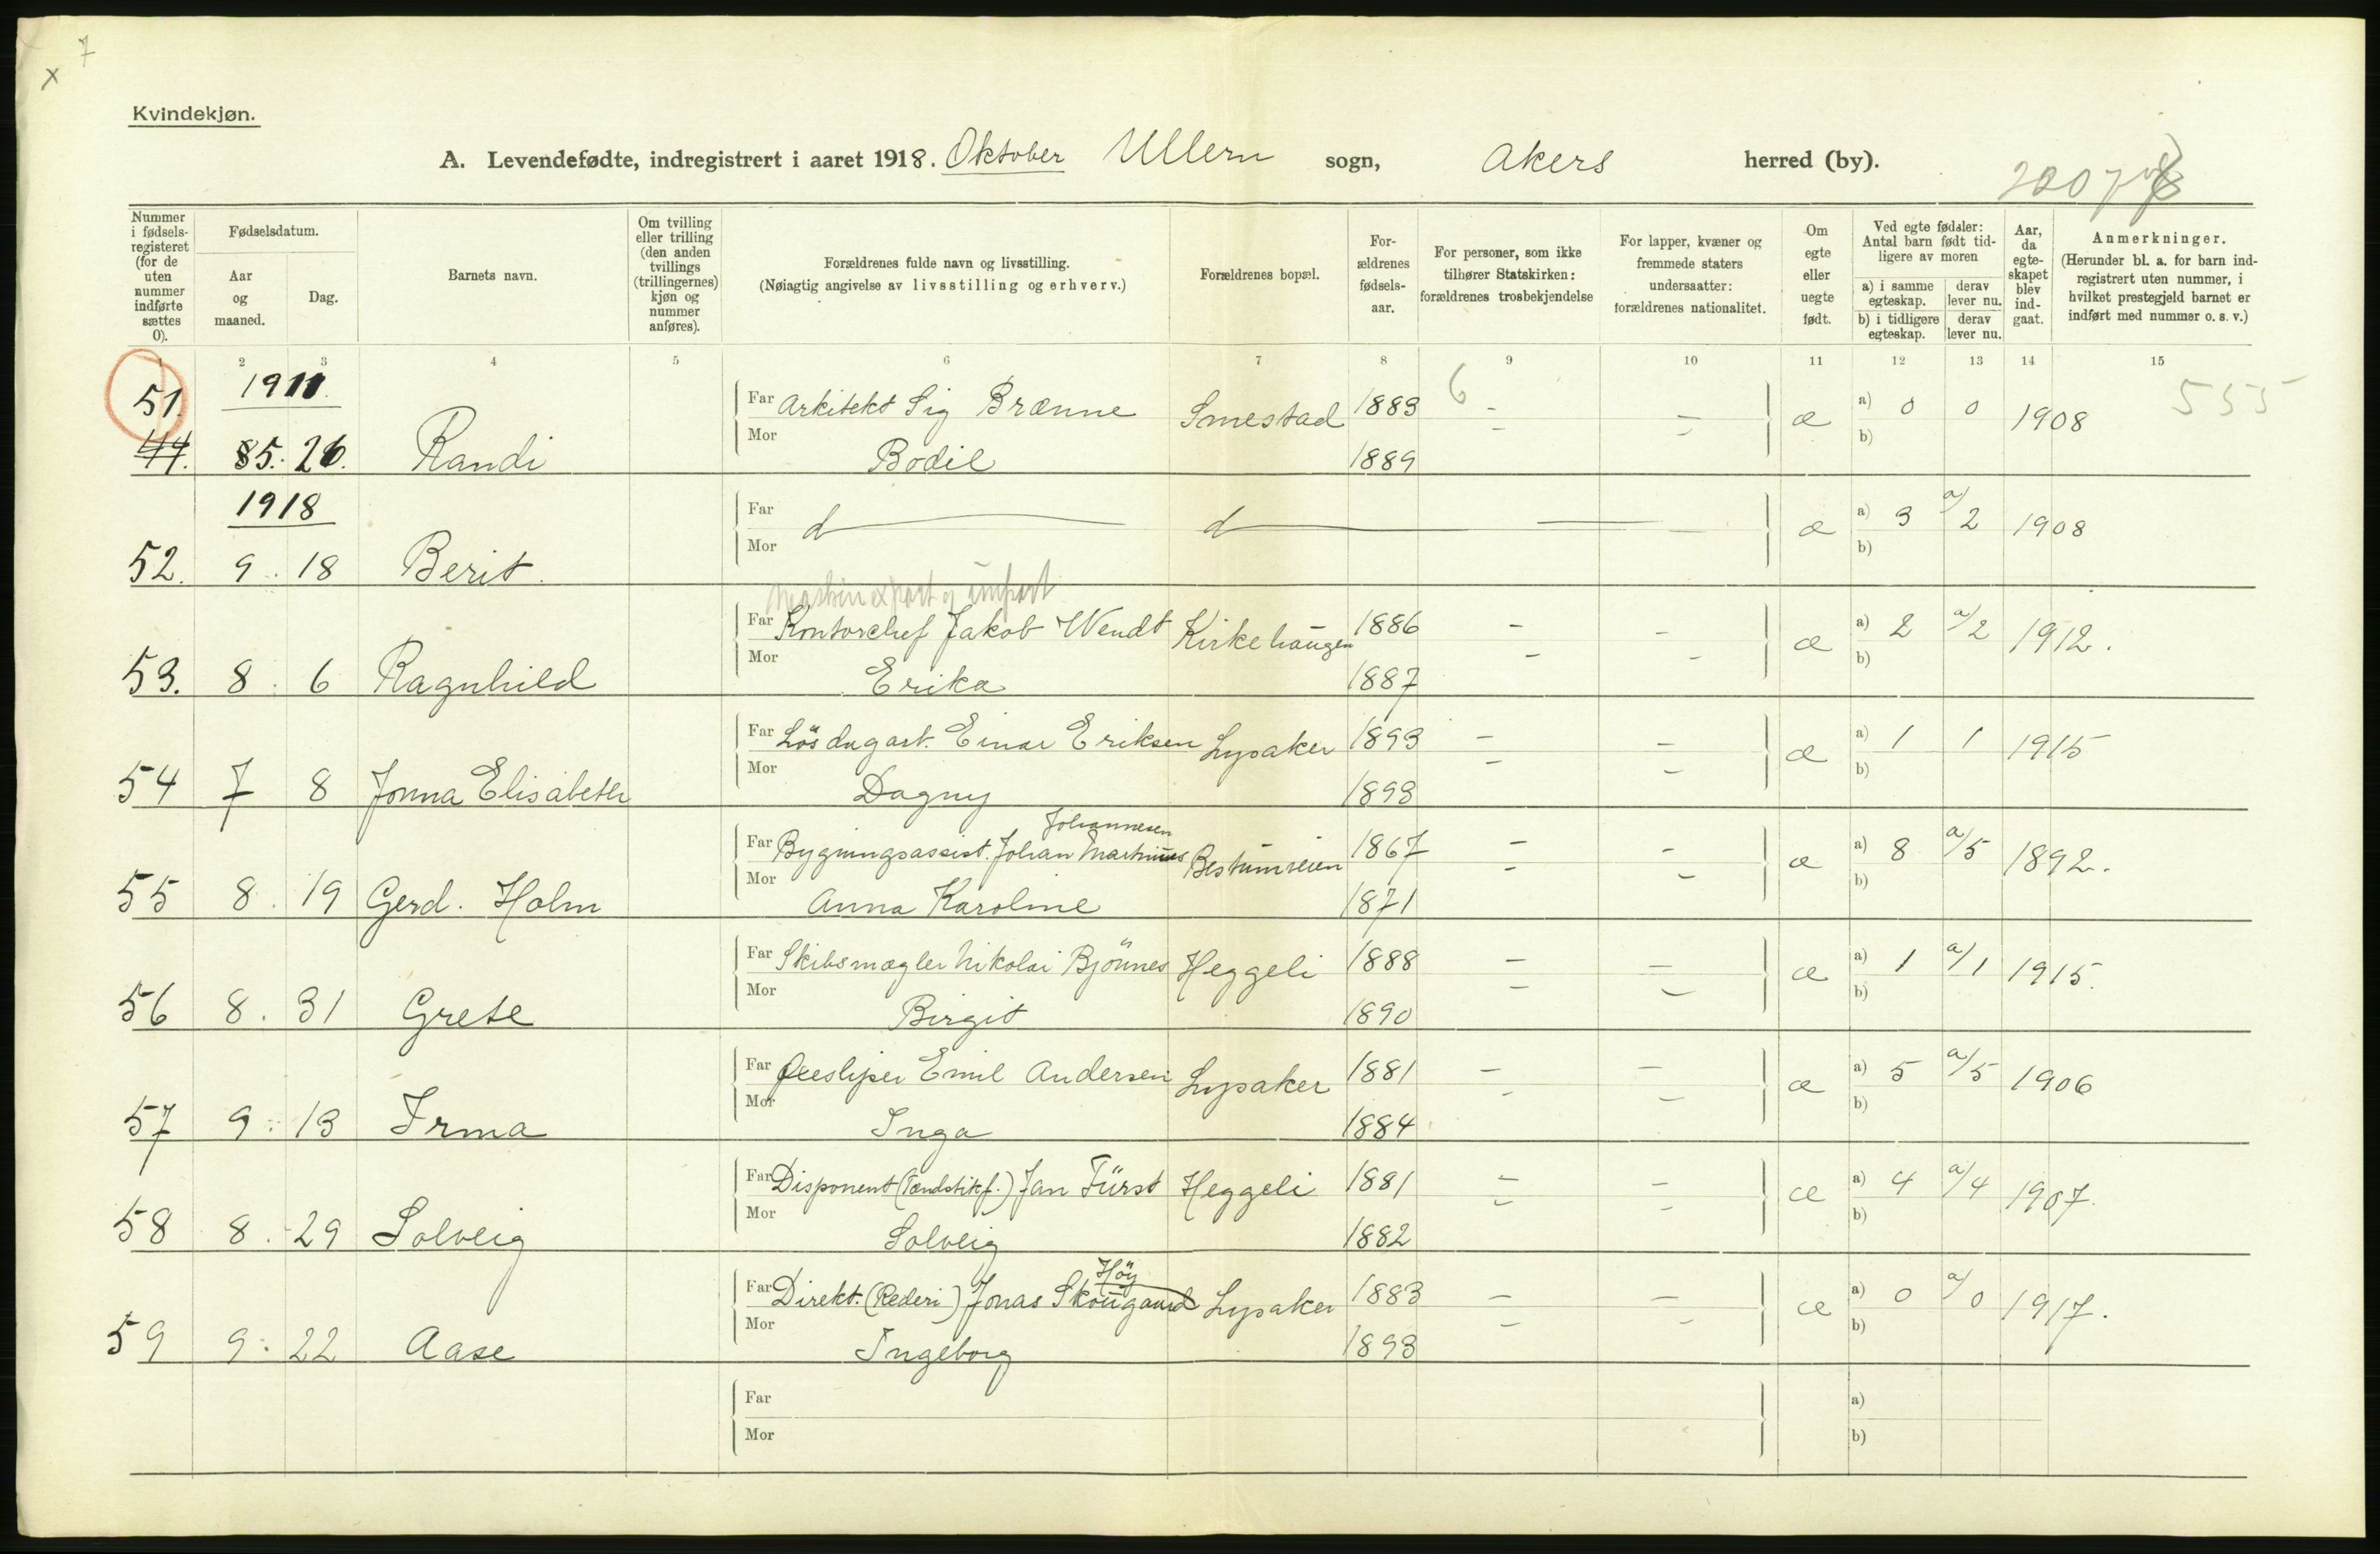 7
x
Kvindekjøn.
A. Levendefødte, indregistrert i aaret 1918. Oktober Ullern sogn, Akers herred (by).
Nummer i fødselsregisteret (for de uten nummer indførte sættes 0).
Fødselsdatum.
Aar og maaned.
Dag.
Barnets navn.
Om tvilling eller trilling (den anden tvillings (trillingernes) kjøn og nummer anføres).
Forældrenes fulde navn og livsstilling.
(Nøiagtig angivelse av livsstilling og erhverv.)
Forældrenes bopæl.
Forældrenes fødselsaar.
For personer, som ikke tilhører Statskirken: forældrenes trosbekjendelse
For lapper, kvæner og fremmede staters undersaatter: forældrenes nationalitet.
Om egte eller uegte født.
Ved egte fødsler: Antal barn født tidligere av moren
a) i samme egteskap. derav lever nu.
b) i tidligere egteskap. derav lever nu.
Aar, da egteskapet blev indgaat.
Anmerkninger.
(Herunder bl. a. for barn indregistrert uten nummer, i hvilket prestegjeld barnet er indført med nummer o. s. v.)
1 2 3 4 5 6 7 8 9 10 11 12 13 14 15
51. 1911 Far Arkitekt Sig Brænne Smestad 1883 6 - - æ a) 0 0 1908 555
44. 5. 26. Randi Mor Bodil 1889 - - b)
1918 Far d d æ a) 3 a/2 1908
52. 9. 18 Berit. Mor b)
Maskinexport og import
Far Kontorchef Jakob Wendt Kirkehaugen 1886 - - æ a) 2 a/2 1912.
53. 8. 6 Ragnhild Mor Erika 1887 - - b)
Far Løsdagarb. Einar Eriksen Lysaker 1893 - - æ a) 1 1 1915
54 7 8 Jonna Elisabeth Mor Dagny 1893 - - b)
Johannesen
Far Bygningsassist. Johan Martinius Bestumveien 1867 - - æ a) 8 a/5 1892.
55 8. 19 Gerd. Holm Mor Anna Karoline 1871 - - b)
Far Skibsmægler Nikolai Bjönnes Heggeli 1888 - - æ a) 1 a/1 1915.
56 8. 31 Grete Mor Birgit 1890 - - b)
Far Emil Andersen Lysaker 1881 - - æ a) 5 a/5 1906
57 9. 13 Irma Mor Inga 1884 - - b)
Far Disponent (Tændstikf.) Jan Fürst Heggeli 1881 - - æ a) 4 a/4 1907.
58 8. 29 Solveig Mor Solveig 1882 - - b)
Höy
Far Direkt. (Rederi) Jonas Skougaard Lysaker 1883 - - æ a) 0 a/0 1917.
59 9. 22 Aase Mor Ingeborg 1893 - - b)
Far a)
Mor b)